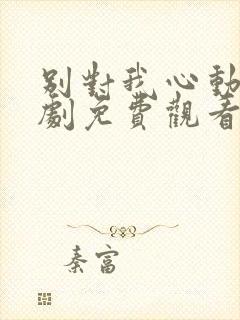 別對我心動
劇免費觀看
秦富